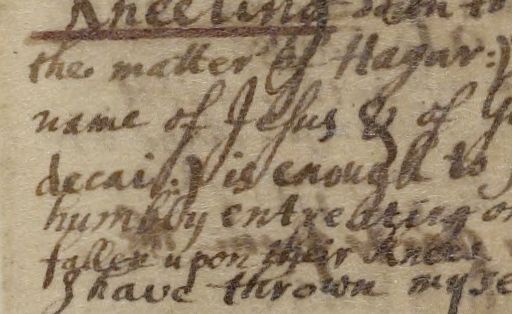 Kneeling
the matter of Hagar:)
name of Jesus & of
decai:) is enough to
humbly entreating
fallen upon their knees
I have thrown myse